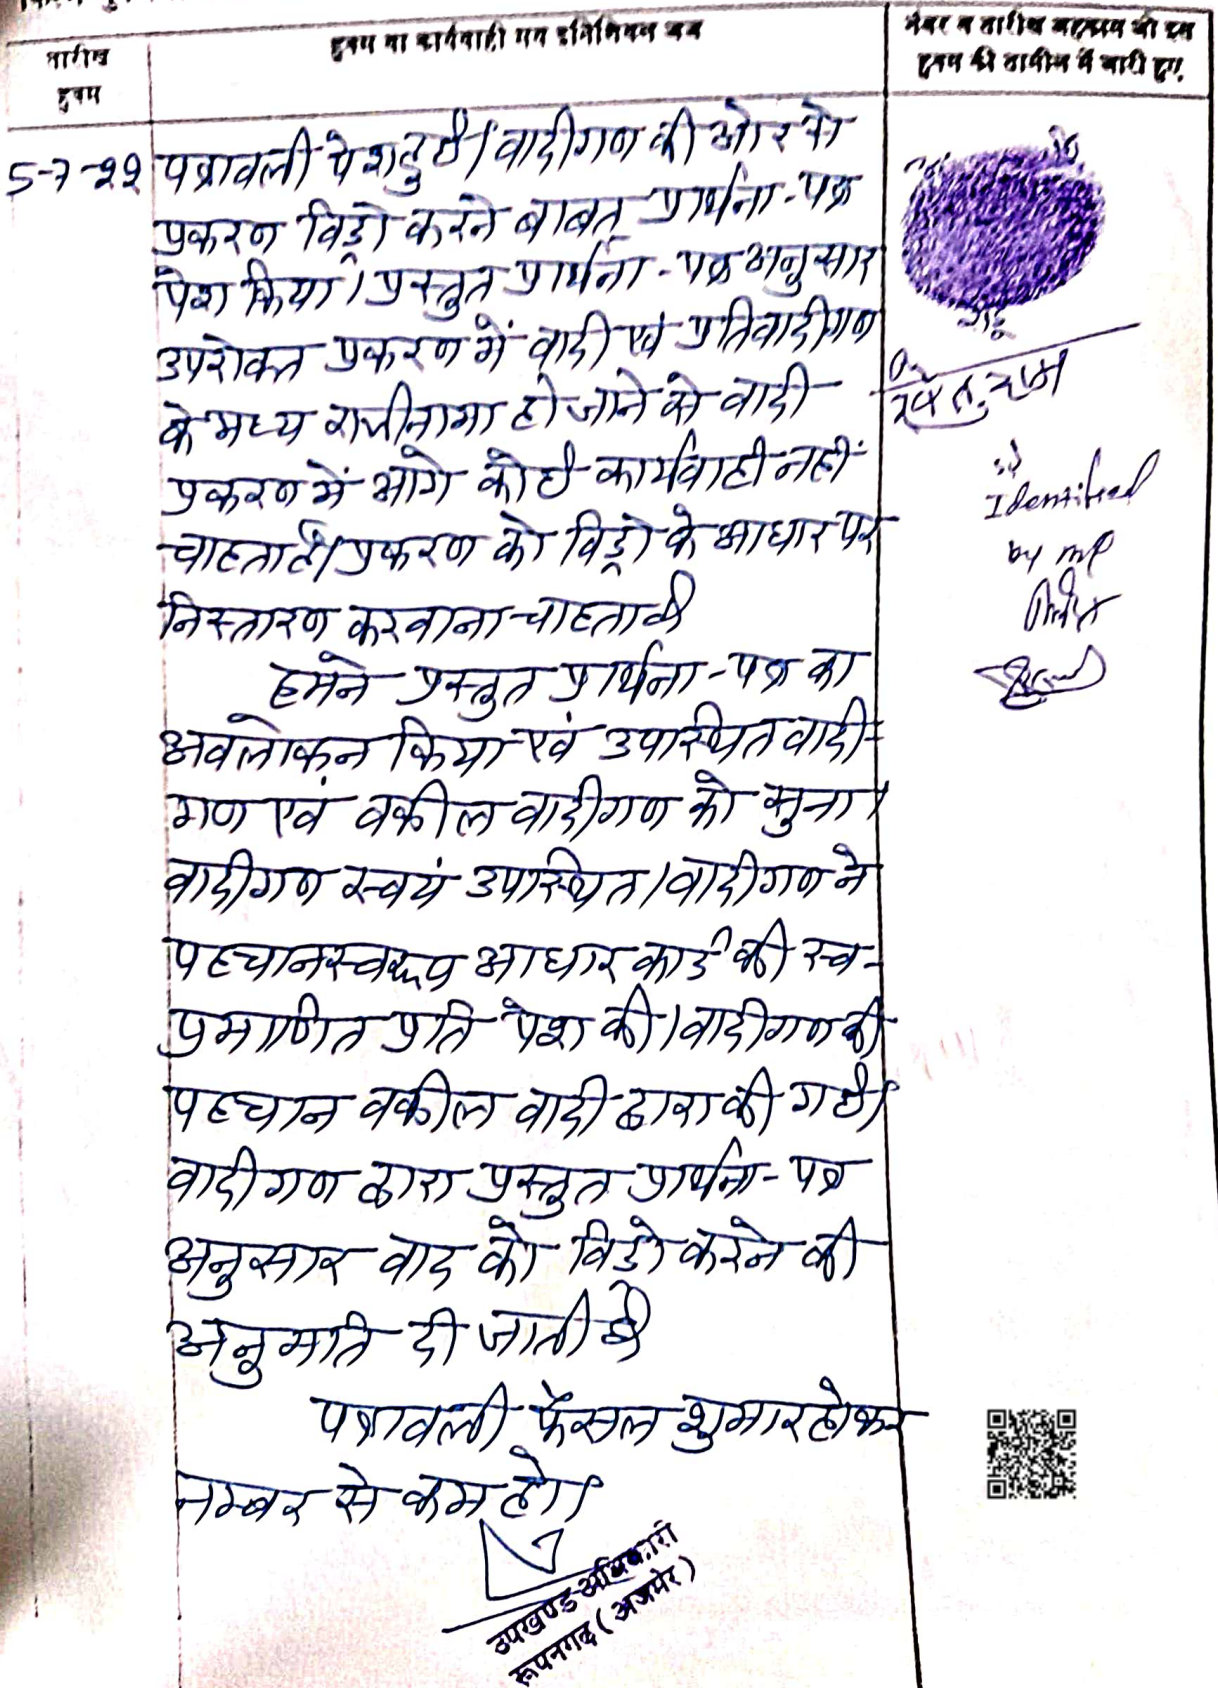 तारीख
हुक्म
हुक्म या कार्यवाही मय इनिशियल जज
नंबर व तारीख अहकाम जो इस
हुक्म की तामील में जारी हुए
5-7-22
पत्रावली पेश हुई। वादीगण की ओर से
प्रकरण विड्रो करने बाबत् प्रार्थना-पत्र
पेश किया। प्रस्तुत प्रार्थना-पत्र अनुसार
उपरोक्त प्रकरण में वादी एवं प्रतिवादीगण
के मध्य राजीनामा हो जाने से वादी
प्रकरण में आगे कोई कार्यवाही नहीं
चाहता है। प्रकरण को विड्रो के आधार पर
निस्तारण करवाना चाहता है
हमने प्रस्तुत प्रार्थना-पत्र का
अवलोकन किया एवं उपस्थित वादी-
गण एवं वकील वादीगण को सुना।
वादीगण स्वयं उपस्थित। वादीगण ने
पहचानस्वरूप आधार कार्ड की स्व-
प्रमाणित प्रति पेश की। वादीगण की
पहचान वकील वादी द्वारा की गई।
वादीगण द्वारा प्रस्तुत प्रार्थना-पत्र
अनुसार वाद को विड्रो करने की
अनुमति दी जाती है
पत्रावली फैसल शुमार होकर
नम्बर से कम हो।
उपखण्ड अधिकारी
रूपनगढ़ (अजमेर)
Identified
by me